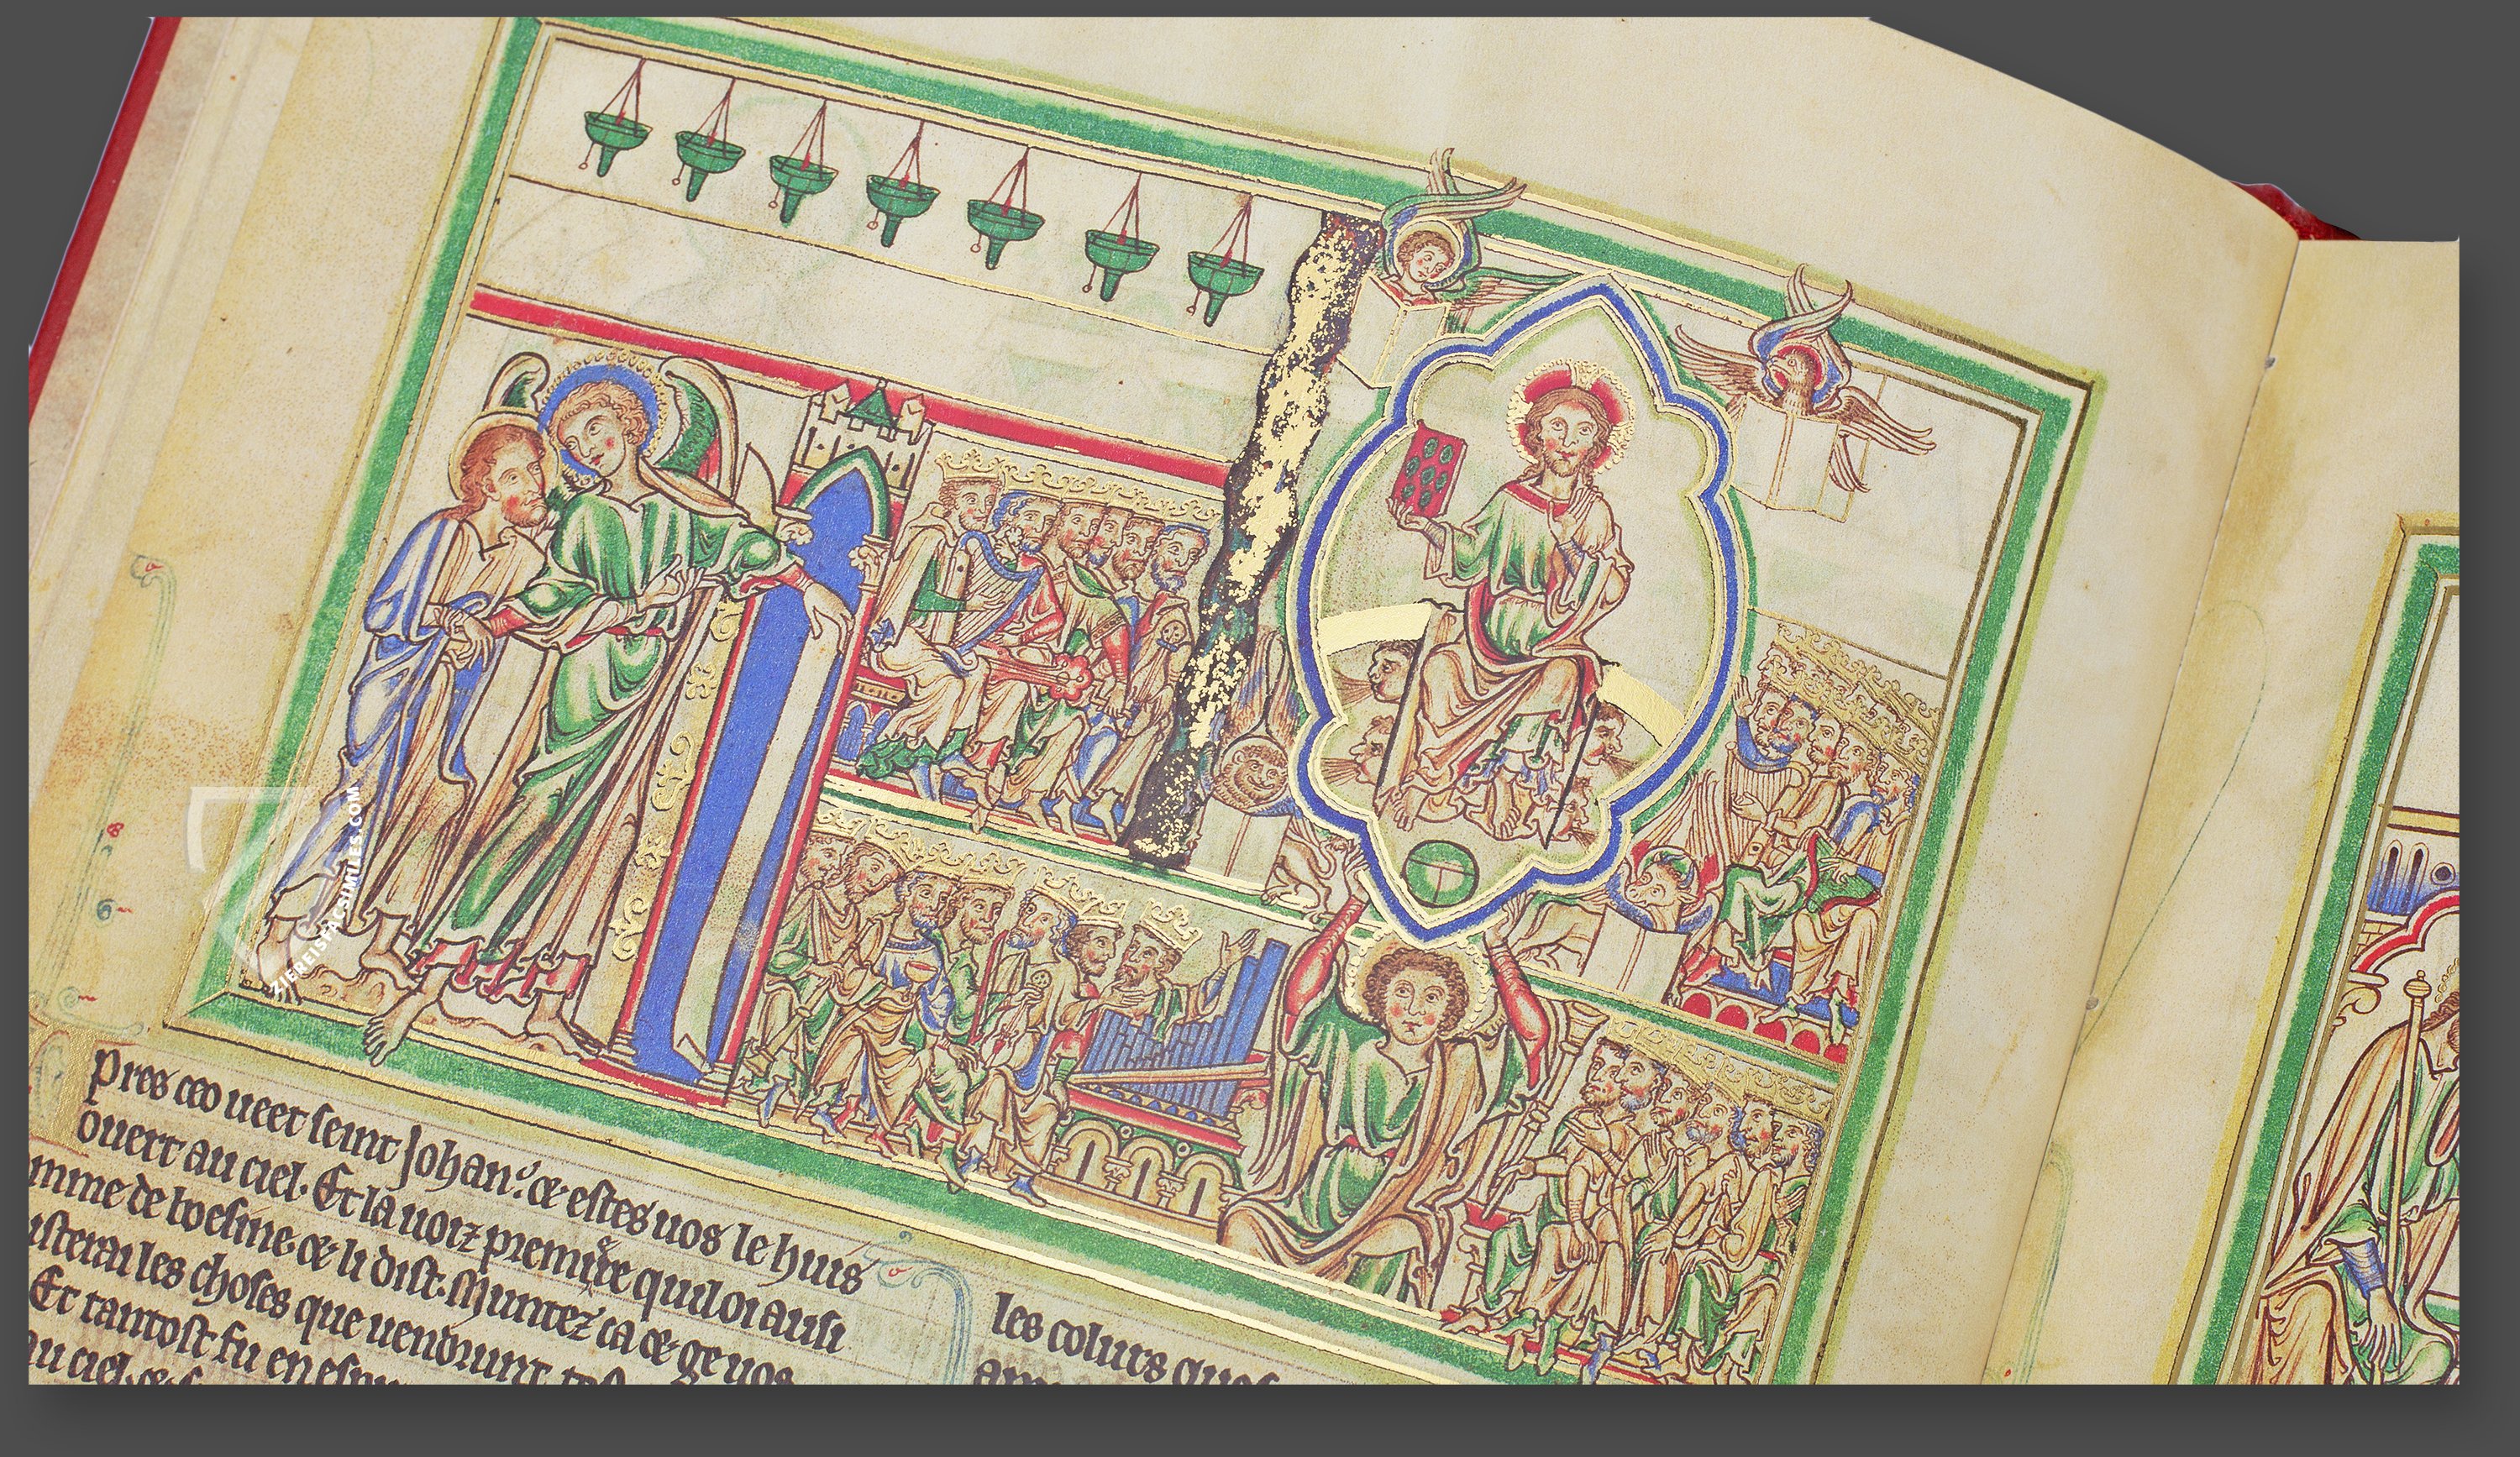 pres ceo ueet seint Johan. & estes uos le huis
ouert au ciel. Et la uoiz premiere qui loi ausi
mme de boesine & li dist. Muntez ca & ge uos
isterai les choses que uendrunt
Et tantost fu en
au ciel.
les colurs ques
ZIEREISFACSIMILES.COM